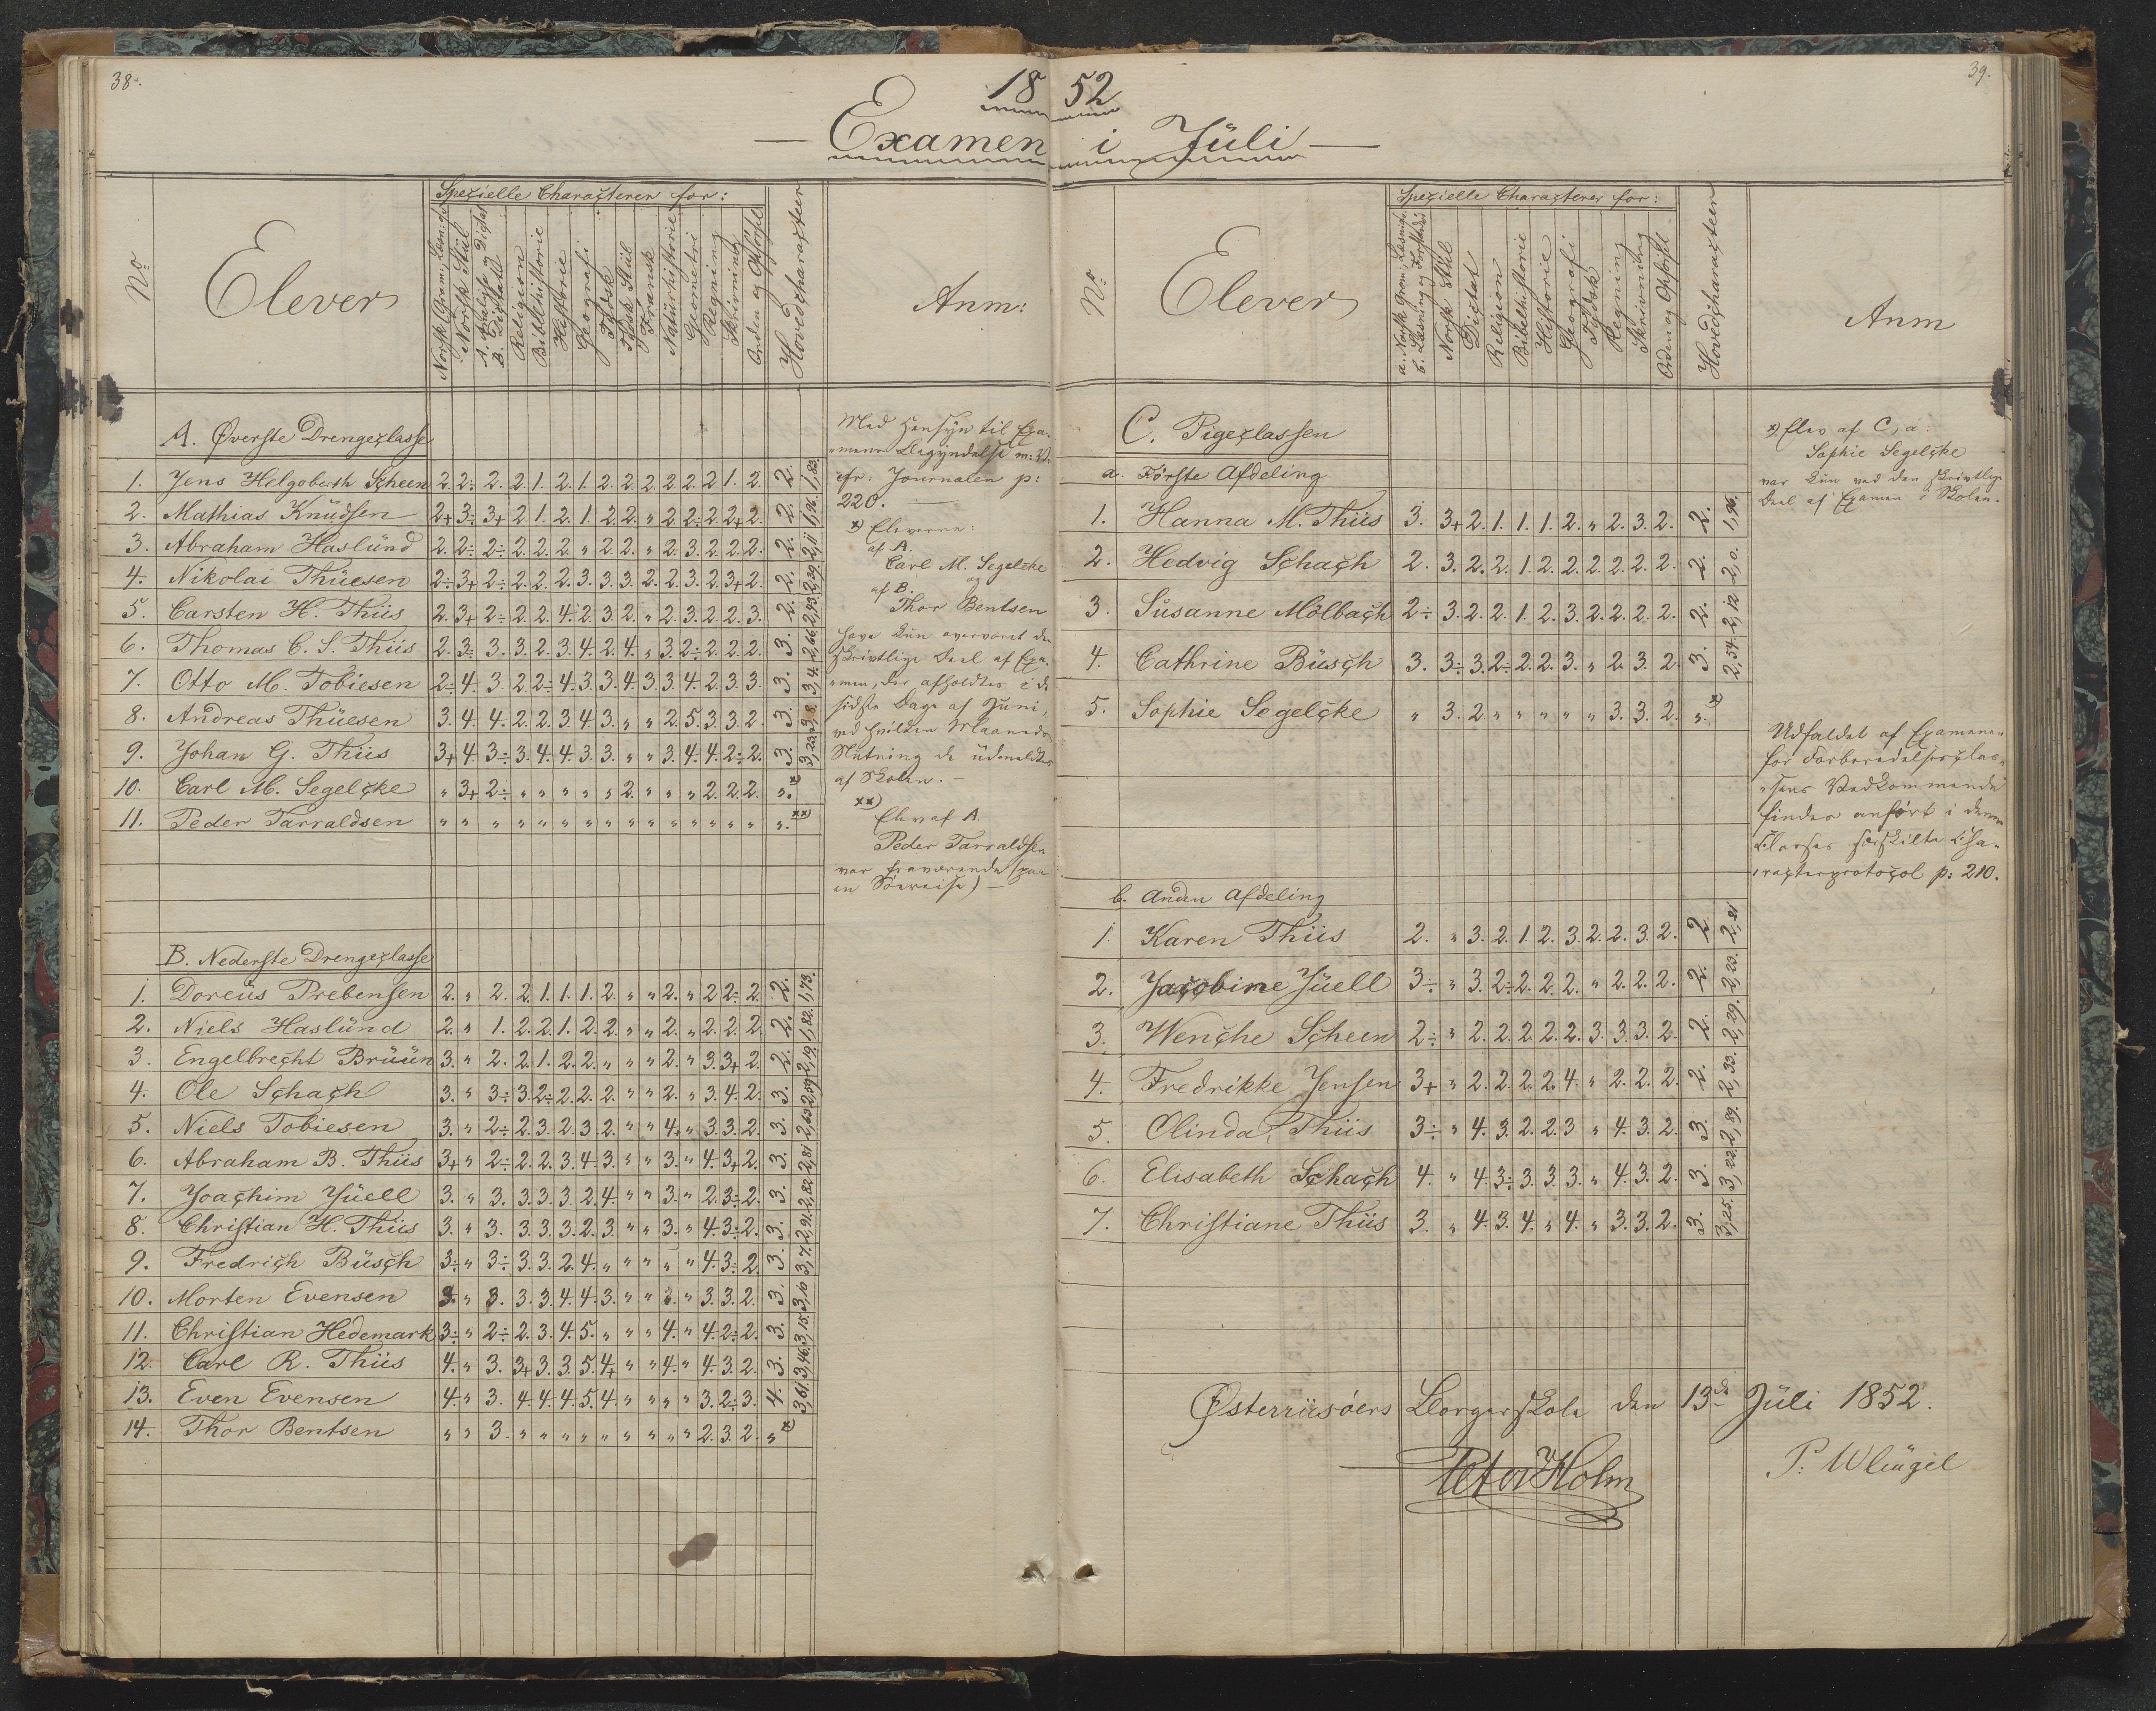 38.
1852
Examen i Jüli
39.
No
Elever
Spezielle Characterer for:
Norsk Gram:, Læsn:
Norsk Stiil
A. Dictat
B. Dictat
Religion
Bibelhistorie
Historie
Geografi
Tydsk
Tydsk Stiil
Fransk
Natürhistorie
Geometri
Regning
Skrivning
Orden og Opførsel
Hovedcharacteer
Anm:
A. Øverste Drengeclasse
1. Jens Helgoberth Scheen 2. 2÷ 2. 2. 1. 2. 1. 2. 2. 2. 2. 2. 2. 1. 2. 2. 1,83.
2. Mathias Knüdsen 2+ 3÷ 3+ 2. 1. 2. 1. 2. 2. " 2. 2÷ 2. 2+ 2. 2. 1,96.
3. Abraham Haslünd 2. 2÷ 2÷ 2. 2. 2. " 2. 2. " 2. 3. 2. 2. 2. 2. 2,11
4. Nikolai Thüesen 2÷ 3+ 2÷ 2. 2. 2. 3. 3. 3. 2. 2. 3. 2. 3+ 2. 2. 2,39.
5. Carsten H. Thiis 2. 3+ 2÷ 2. 2. 4. 2. 3. 2. " 2. 3. 2. 2. 3. 2. 2,43.
6. Thomas C. S. Thiis 2. 3÷ 3. 3. 2. 3. 4. 2. 4. " 3. 2÷ 2. 2. 2. 3. 2,66.
7. Otto M. Tobiesen 2÷ 4. 3. 2. 2÷ 4. 3. 3. 4. 3. 3. 4. 2. 3. 3. 3. 3,4.
8. Andreas Thüesen 3. 4. 4. 2. 2. 3. 4. 3. " " 2. 5. 3. 3. 2. 3. 3,8.
9. Johan G. Thiis 3+ 4. 3÷ 3. 4. 4. 3. 3. " " 3. 4. 4. 2÷ 2. 3. 3,23.
10. Carl M. Segelcke " 3+ 2÷ " " " " " 2. " " " 2. 2. 2. ". x)
11. Peder Tarraldsen " " " " " " " " " " " " " " " ". xx)
B. Nederste Drengeclasse
1. Doreüs Prebensen 2. " 2. 2. 1. 1. 1. 2. " " 2. " 2. 2÷ 2. 2. 1,73.
2. Niels Haslünd 2. " 1. 2. 2. 1. 2. 2. " " 2. " 2. 2. 2. 2. 1,82.
3. Engelbrecht Brüün 3. " 2. 2. 1. 2. 2. " " " 2. " 3. 3+ 2. 2. 2,19.
4. Ole Schach 3. " 3÷ 3. 2÷ 2. 2. 2. " " 2. " 3. 4. 2. 3. 2,59
5. Niels Tobiesen 3. " 2÷ 2. 3. 2. 3. 2. " " 4+ " 3. 3. 2. 3. 2,63
6. Abraham B. Thiis 3+ " 2÷ 2. 2. 3. 4. 3. " " 3. " 4. 3+ 2. 3. 2,81
7. Joachim Jüell 3. " 3. 3. 3. 3. 2. 4. " " 3. " 2. 3÷ 2. 3. 2,82.
8. Christian H. Thiis 3. " 3. 3. 3. 3. 2. 3. " " 3. " 4. 3÷ 2. 3. 2,91.
9. Fredrich Büsch 3÷ " 3÷ 3. 3. 2. 4. " " " " " 4. 3÷ 2. 3. 3,7.
10. Morten Evensen 3. " 3. 3. 3. 4. 4. 3. " " 3. " 3. 3. 2. 3. 3,10
11. Christian Hedemark 3÷ " 2÷ 2. 3. 4. 5. " " " 4. " 4. 2÷ 2. 3. 3,15.
12. Carl R. Thiis 4. " 3. 3+ 3. 3. 5. 4+ " " 4. " 4. 3. 2. 3. 3,46.
13. Even Evensen 4. " 3. 4. 4. 4. 5. 4. " " " " 3. 2÷ 3. 4. 3,61.
14. Thor Bentsen " " 3. " " " " " " " " " 2. 3. 2. " x)
Med Hensyn til Exa-
mens Begyndelse m: V:
cfr: Journalen p:
220.
x) Eleverne:
af A.
Carl M. Segelcke
og
af B.
Thor Bentsen
have kün overværet den
skrivtlige Deel af Exa-
men, der afholdtes i de
sidste Dage af Jüni,
ved hvilken Maaneds
Slütning de üdmeldtes
af Skolen. -
xx)
Elev af A.
Peder Tarraldsen
var fraværende (paa
en Söereise) -
No
Elever
Spezielle Characterer for:
a. Norsk Gram:, Læsning
b. Læsning og Forstand
Norsk Stiil
Dictat
Religion
Bibelhistorie
Historie
Geografi
Tydsk
Regning
Skrivning
Orden og Opførsel
Hovedcharacteer
Anm
C. Pigeclassen
a. Förste Afdeling
1. Hanna M. Thiis 3. 3+ 2. 1. 1. 1. 2. " 2. 3. 2. 2. 1,96.
2. Hedvig Schach 2. 3. 2. 2. 1. 2. 2. 2. 2. 2. 2. 2. 2,0.
3. Süsanne Mölbach 2÷ 3. 2. 2. 1. 2. 3. 2. 2. 2. 2. 2. 2,12
4. Cathrine Büsch 3. 3÷ 3. 2÷ 2. 2. 3. " 2. 3. 2. 3. 2,54.
5. Sophie Segelcke " 3. 2. " " " " " 3. 3. 2. ". x)
b. Anden Afdeling
1. Karen Thiis 2. " 3. 2. 1. 2. 3. 2. 2. 3. 2. 2. 2,21
2. Jacobine Jüell 3÷ " 3. 2÷ 2. 2. 2. " 2. 2. 2. 2. 2,23.
3. Wenche Scheen 2÷ " 2. 2. 2. 2. 2. 3. 3. 3. 2. 2. 2,29.
4. Fredrikke Jensen 3+ " 2. 2. 2. 2. 4. " 2. 2. 2. 2. 2,33.
5. Olinda Thiis 3÷ " 4. 3. 2. 2. 3 " 4. 3. 2. 3. 2,89.
6. Elisabeth Schach 4. " 4. 3÷ 3. 3. 3. " 4. 3. 2. 3. 3,22.
7. Christiane Thiis 3. " 4. 3. 4. " 4. " 3. 3. 2. 3. 3,25.
x) Elev af C, a.
Sophie Segelcke
var kün ved den skrivtlige
Deel af Examen i Skolen.
Udfaldet af Examenen
for Forberedelsesclas-
sens Vedkommende
findes anfört i denne
Classes særskilte Cha-
racterprotocol p: 210.
Østerriisöers Borgerskole den 13de Jüli 1852.
Peter Holm
P: Wleügel